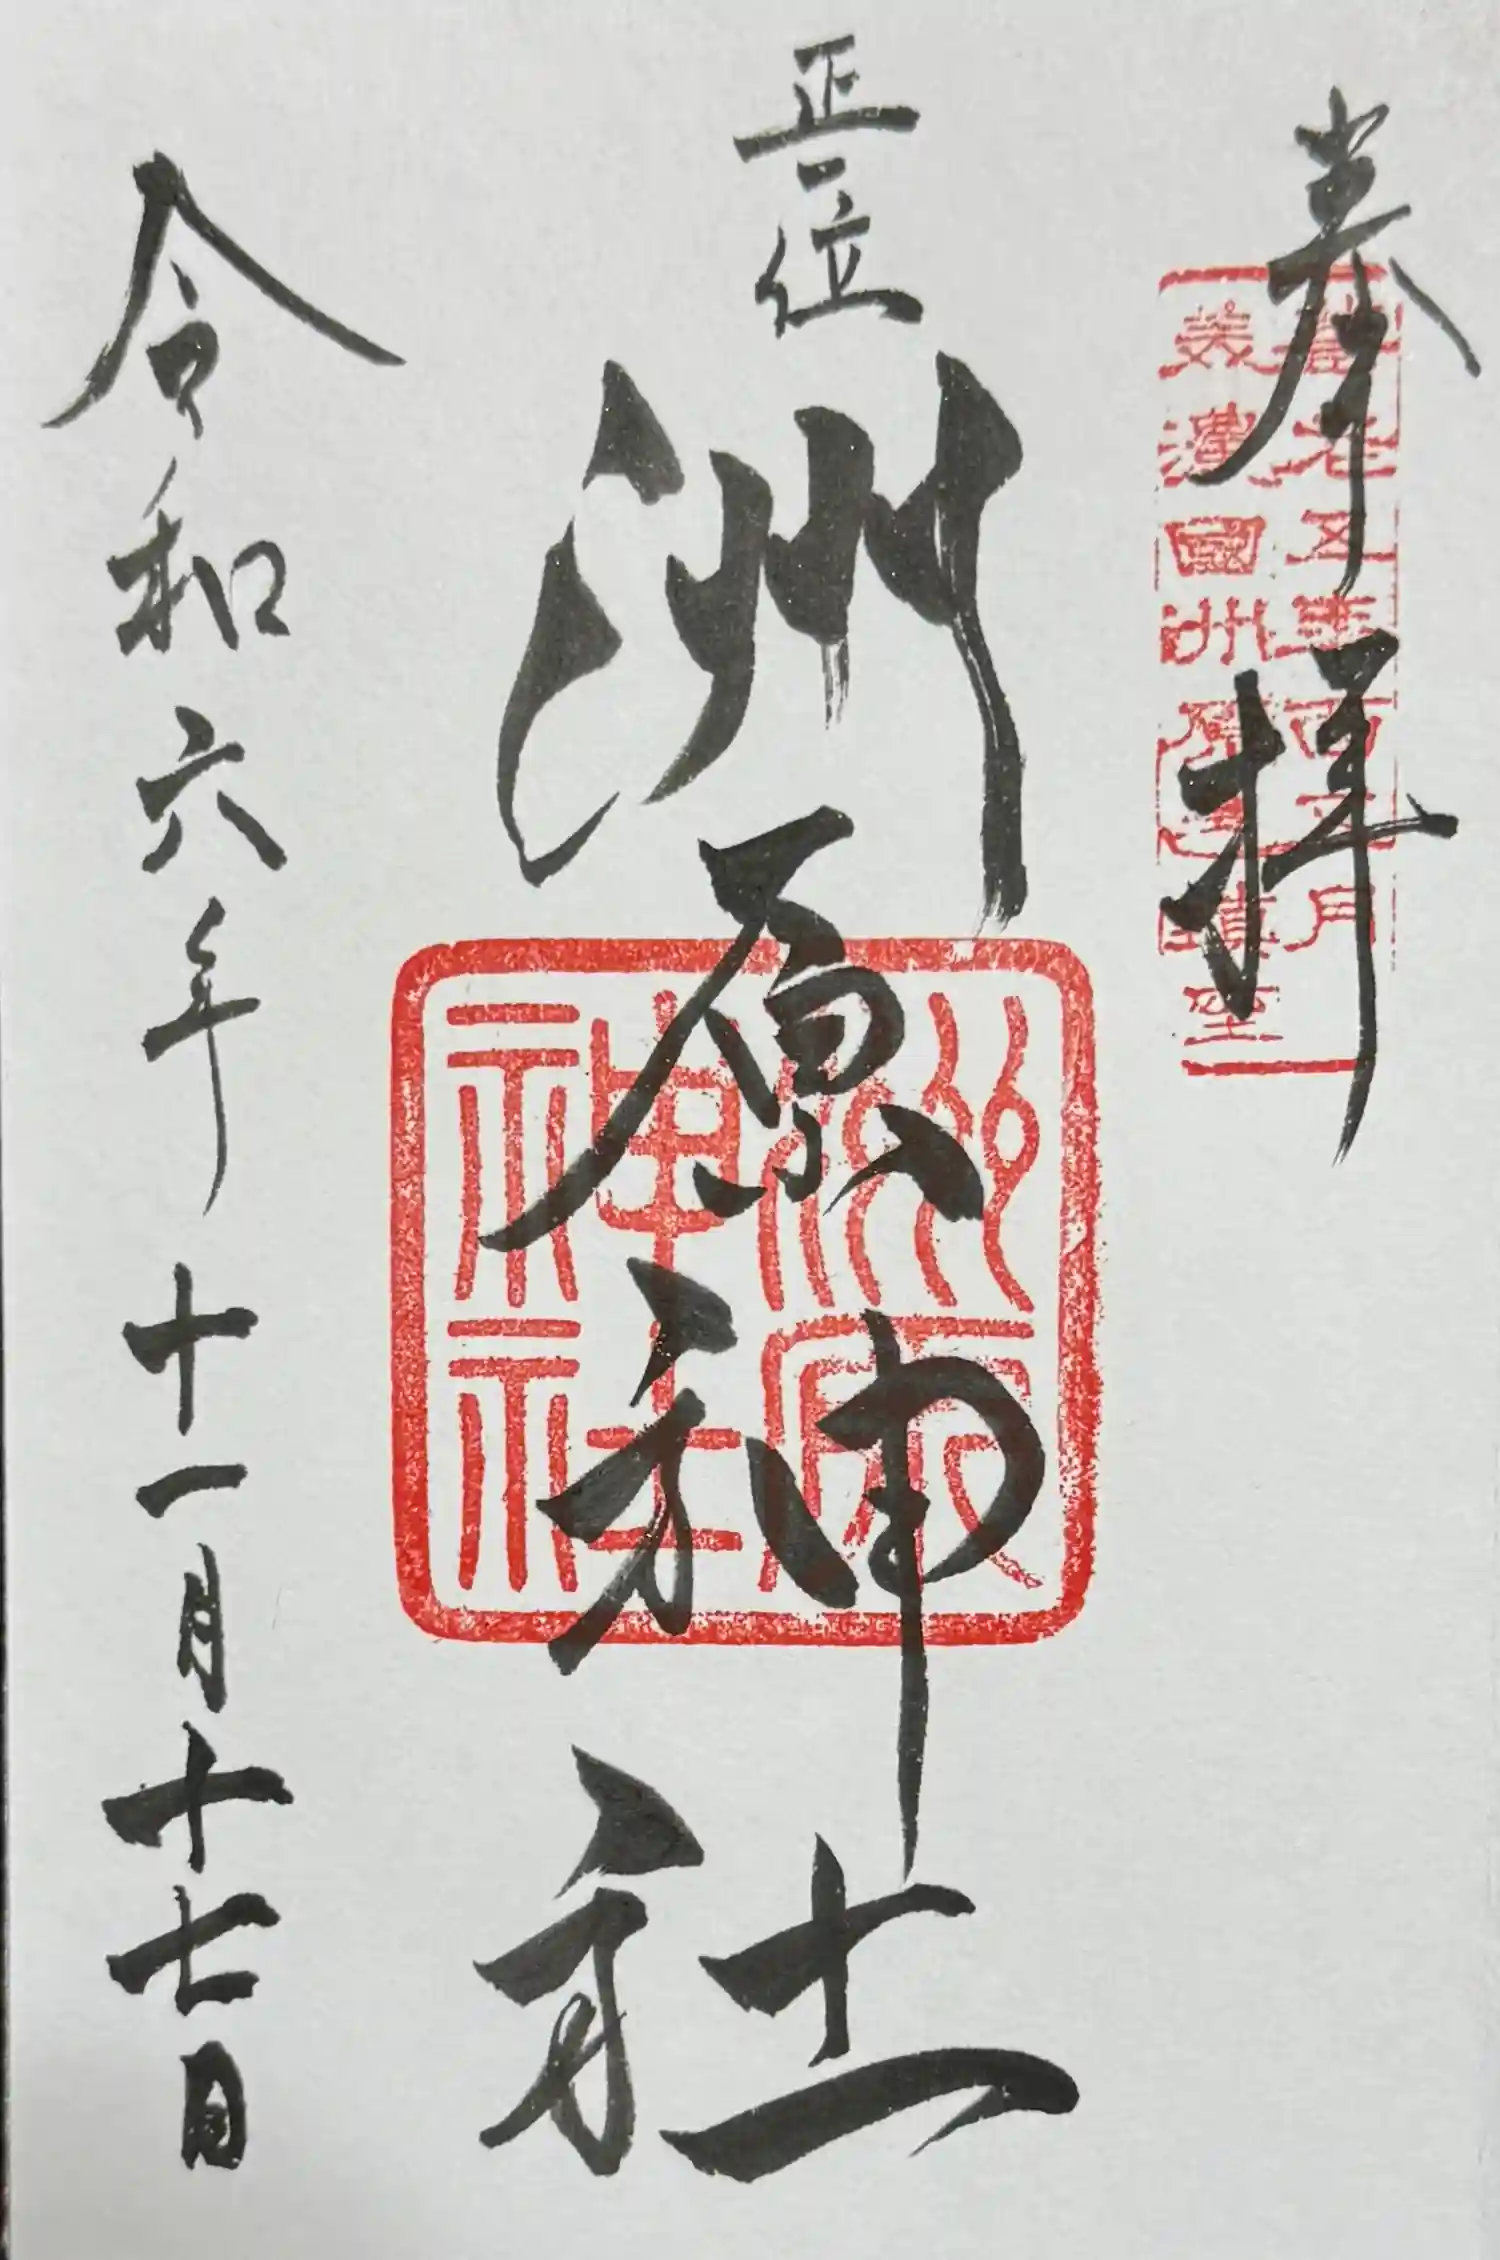 奉拝
養老五年五月
美濃國洲原鎮座
正一位
洲原神社
洲原神社
令和六年十一月十七日